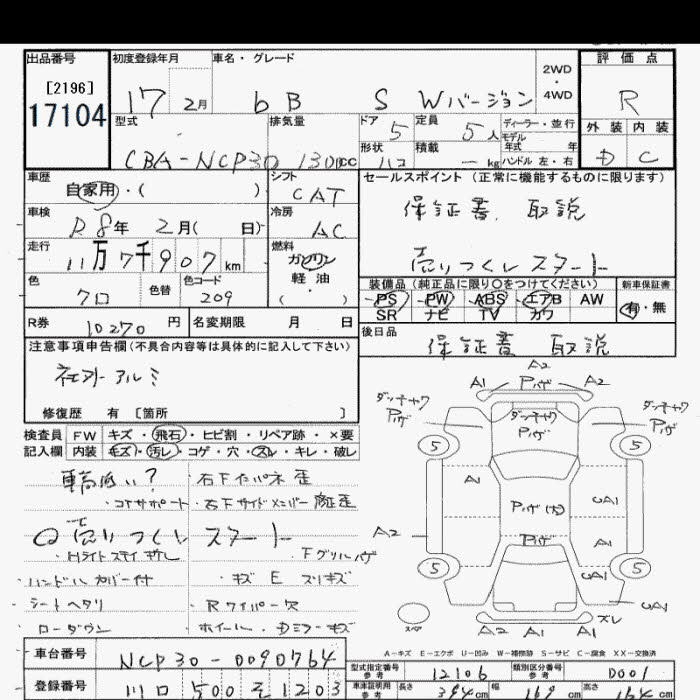 出品番号 初度登録年月 車名・グレード 評価点
[2196] 17104
17 2月 bB S Wバージョン 2WD・4WD R
型式 排気量 ドア 5 定員 5人 ディーラー・並行 外装 内装
CBA-NCP30 1300cc 形状 ハコ 積載 — kg モデル年式 年 ハンドル 左・右 D C
車歴 シフト セールスポイント (正常に機能するものに限ります)
自家用・( ) CAT 保証書 取説
車検 冷房
R8年 2月( 日) AC
走行 燃料 売りつくしスタート
11万7千907km ガソリン
色 色替 色コード 軽油 装備品(純正品に限り○をつけてください) 新車保証書
クロ 209 ( ) PS PW ABS エアB AW 有・無
SR ナビ TV カワ
R券 10270円 名変期限 月 日 後日品
保証書 取説
注意事項申告欄(不具合内容等は具体的に記入して下さい)
社外アルミ
修復歴 有 [箇所 ]
検査員 FW キズ・飛石・ヒビ割・リペア跡・×要
記入欄 内装 キズ・汚レ・コゲ・穴・スレ・キレ・破レ
車高低い? 右Fインパネ歪
コアサポート・右Fサイドメンバー
売りつくしスタート
Fグリルハゲ
ハンドルカバー付 キズ E スリキズ
シートヘタリ Rワイパー欠
ローダウン ホイール・Dミラーキズ
A2
A1 Pハゲ A2
ダッチャク Pハゲ ダッチャク Pハゲ ダッチャク Pハゲ
5 5
A1 Pハゲ(大) UA1
A2 Pハゲ A1
5 UA1 5
UA1
スレ
A2 A1 A1
A-キズ E-エクボ U-凹み W-補修跡 S-サビ C-腐食 XX-交換済
車台番号 NCP30-0090764
型式指定番号 参考 12106 類別区分番号 参考 0001
登録番号 川口 500 そ 1203
車庫証明用 参考 長さ 394cm 幅 169cm 高さ 164cm